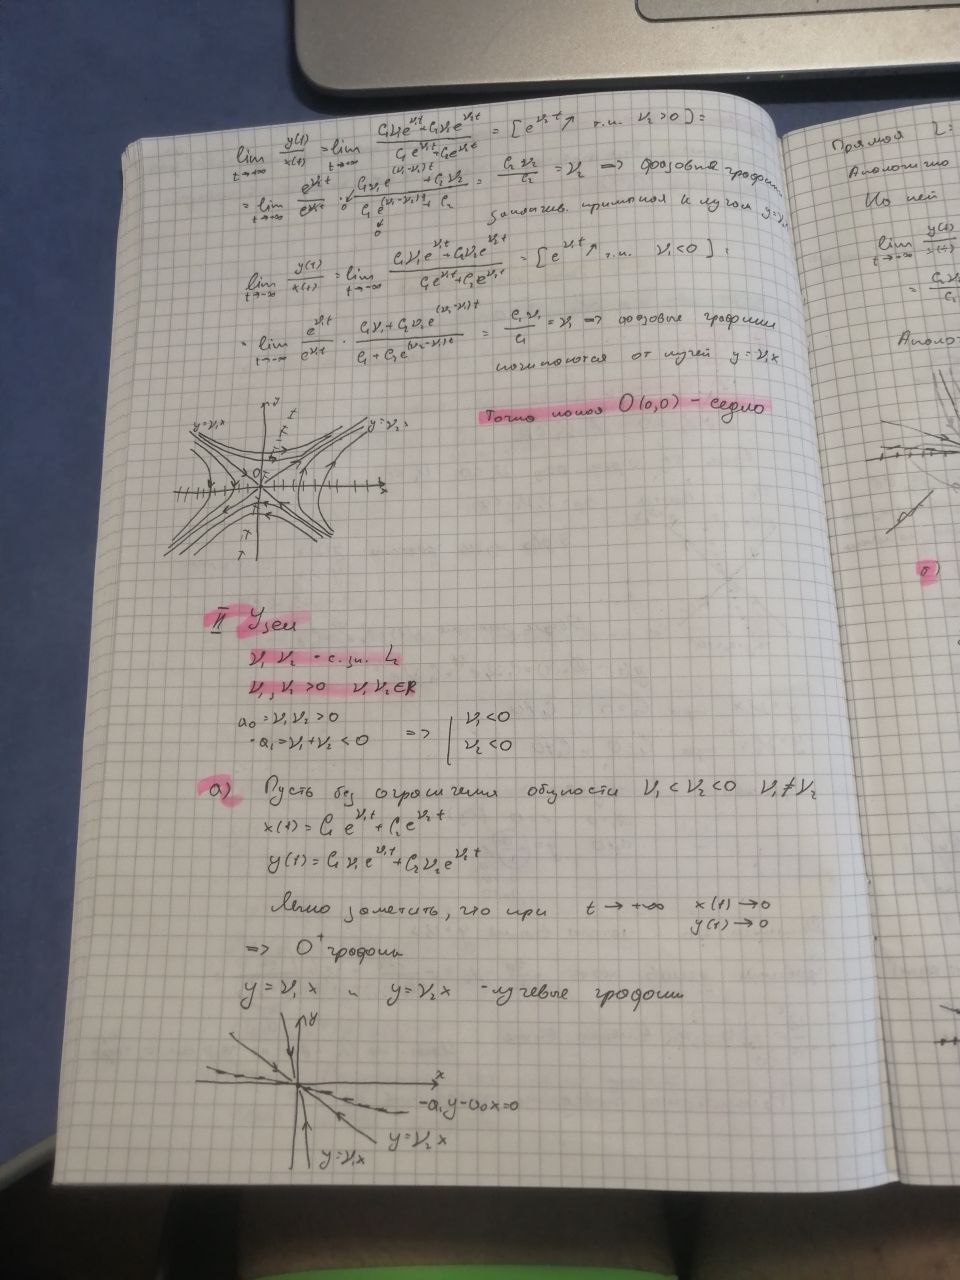 lim_{t→+∞} y(t)/x(t) = lim_{t→+∞} (C₁ν₁e^{ν₁t} + C₂ν₂e^{ν₂t})/(C₁e^{ν₁t} + C₂e^{ν₂t}) = [e^{ν₂t}↗ т.к. ν₂>0] =
= lim_{t→+∞} e^{ν₂t}/e^{ν₂t} · (C₁ν₁e^{(ν₁-ν₂)t} + C₂ν₂)/(C₁e^{(ν₁-ν₂)t} + C₂) = C₂ν₂/C₂ = ν₂ => фазовые графики
примыкая к лучам y=ν₂
lim_{t→-∞} y(t)/x(t) = lim_{t→-∞} (C₁ν₁e^{ν₁t} + C₂ν₂e^{ν₂t})/(C₁e^{ν₁t} + C₂e^{ν₂t}) = [e^{ν₁t}↗ т.к. ν₁<0] =
= lim_{t→-∞} e^{ν₁t}/e^{ν₁t} · (C₁ν₁ + C₂ν₂e^{(ν₂-ν₁)t})/(C₁ + C₂e^{(ν₂-ν₁)t}) = C₁ν₁/C₁ = ν₁ => фазовые графики
начинаются от лучей y=ν₁x
Точка покоя O(0,0) - седло
y
y=ν₁x
y=ν₂x
O
x
II Узел
ν₁ ν₂ - с.зн. L₂
ν₁,ν₂ >0 ν₁ν₂∈R
a₀=ν₁ν₂>0
-a₁=ν₁+ν₂<0 => ν₁<0
ν₂<0
а) Пусть без ограничения общности ν₁<ν₂<0 ν₁≠ν₂
x(t)=C₁e^{ν₁t}+C₂e^{ν₂t}
y(t)=C₁ν₁e^{ν₁t}+C₂ν₂e^{ν₂t}
Легко заметить, что при t→+∞ x(t)→0
y(t)→0
=> O⁺ графики
y=ν₁x и y=ν₂x - лучевые графики
y
x
-a₁y-a₀x=0
y=ν₂x
y=ν₁x
Прямая L:
Аналогично
На ней
lim_{t→+∞} y(t)/x(t)
б)